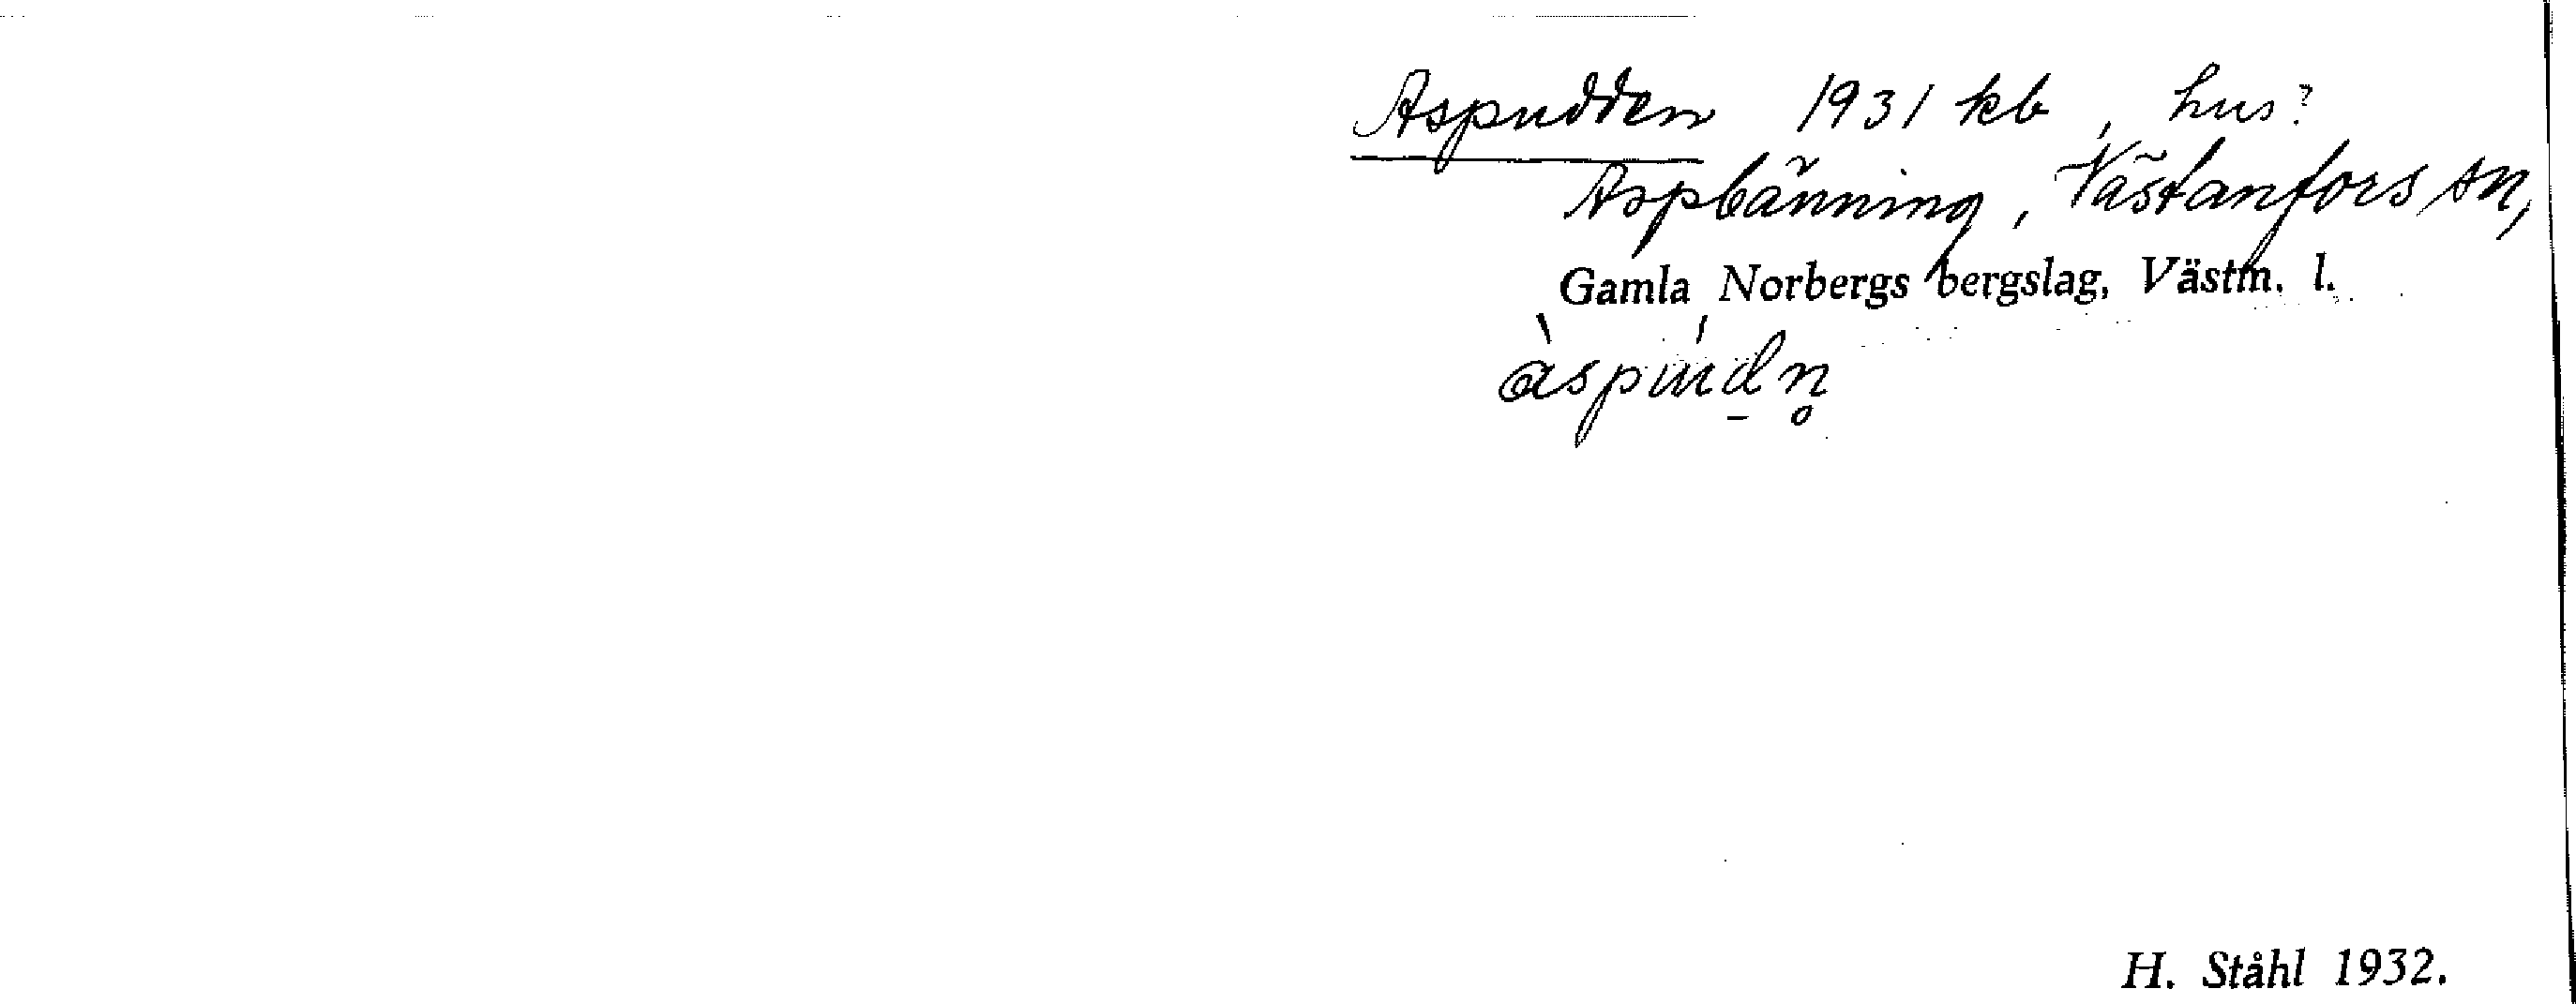 Aspudden 1931 kb, hus?
Aspbänning, Västanfors sn,
Gamla Norbergs bergslag, Västm. l.
àspúdn̥
H. Ståhl 1932.